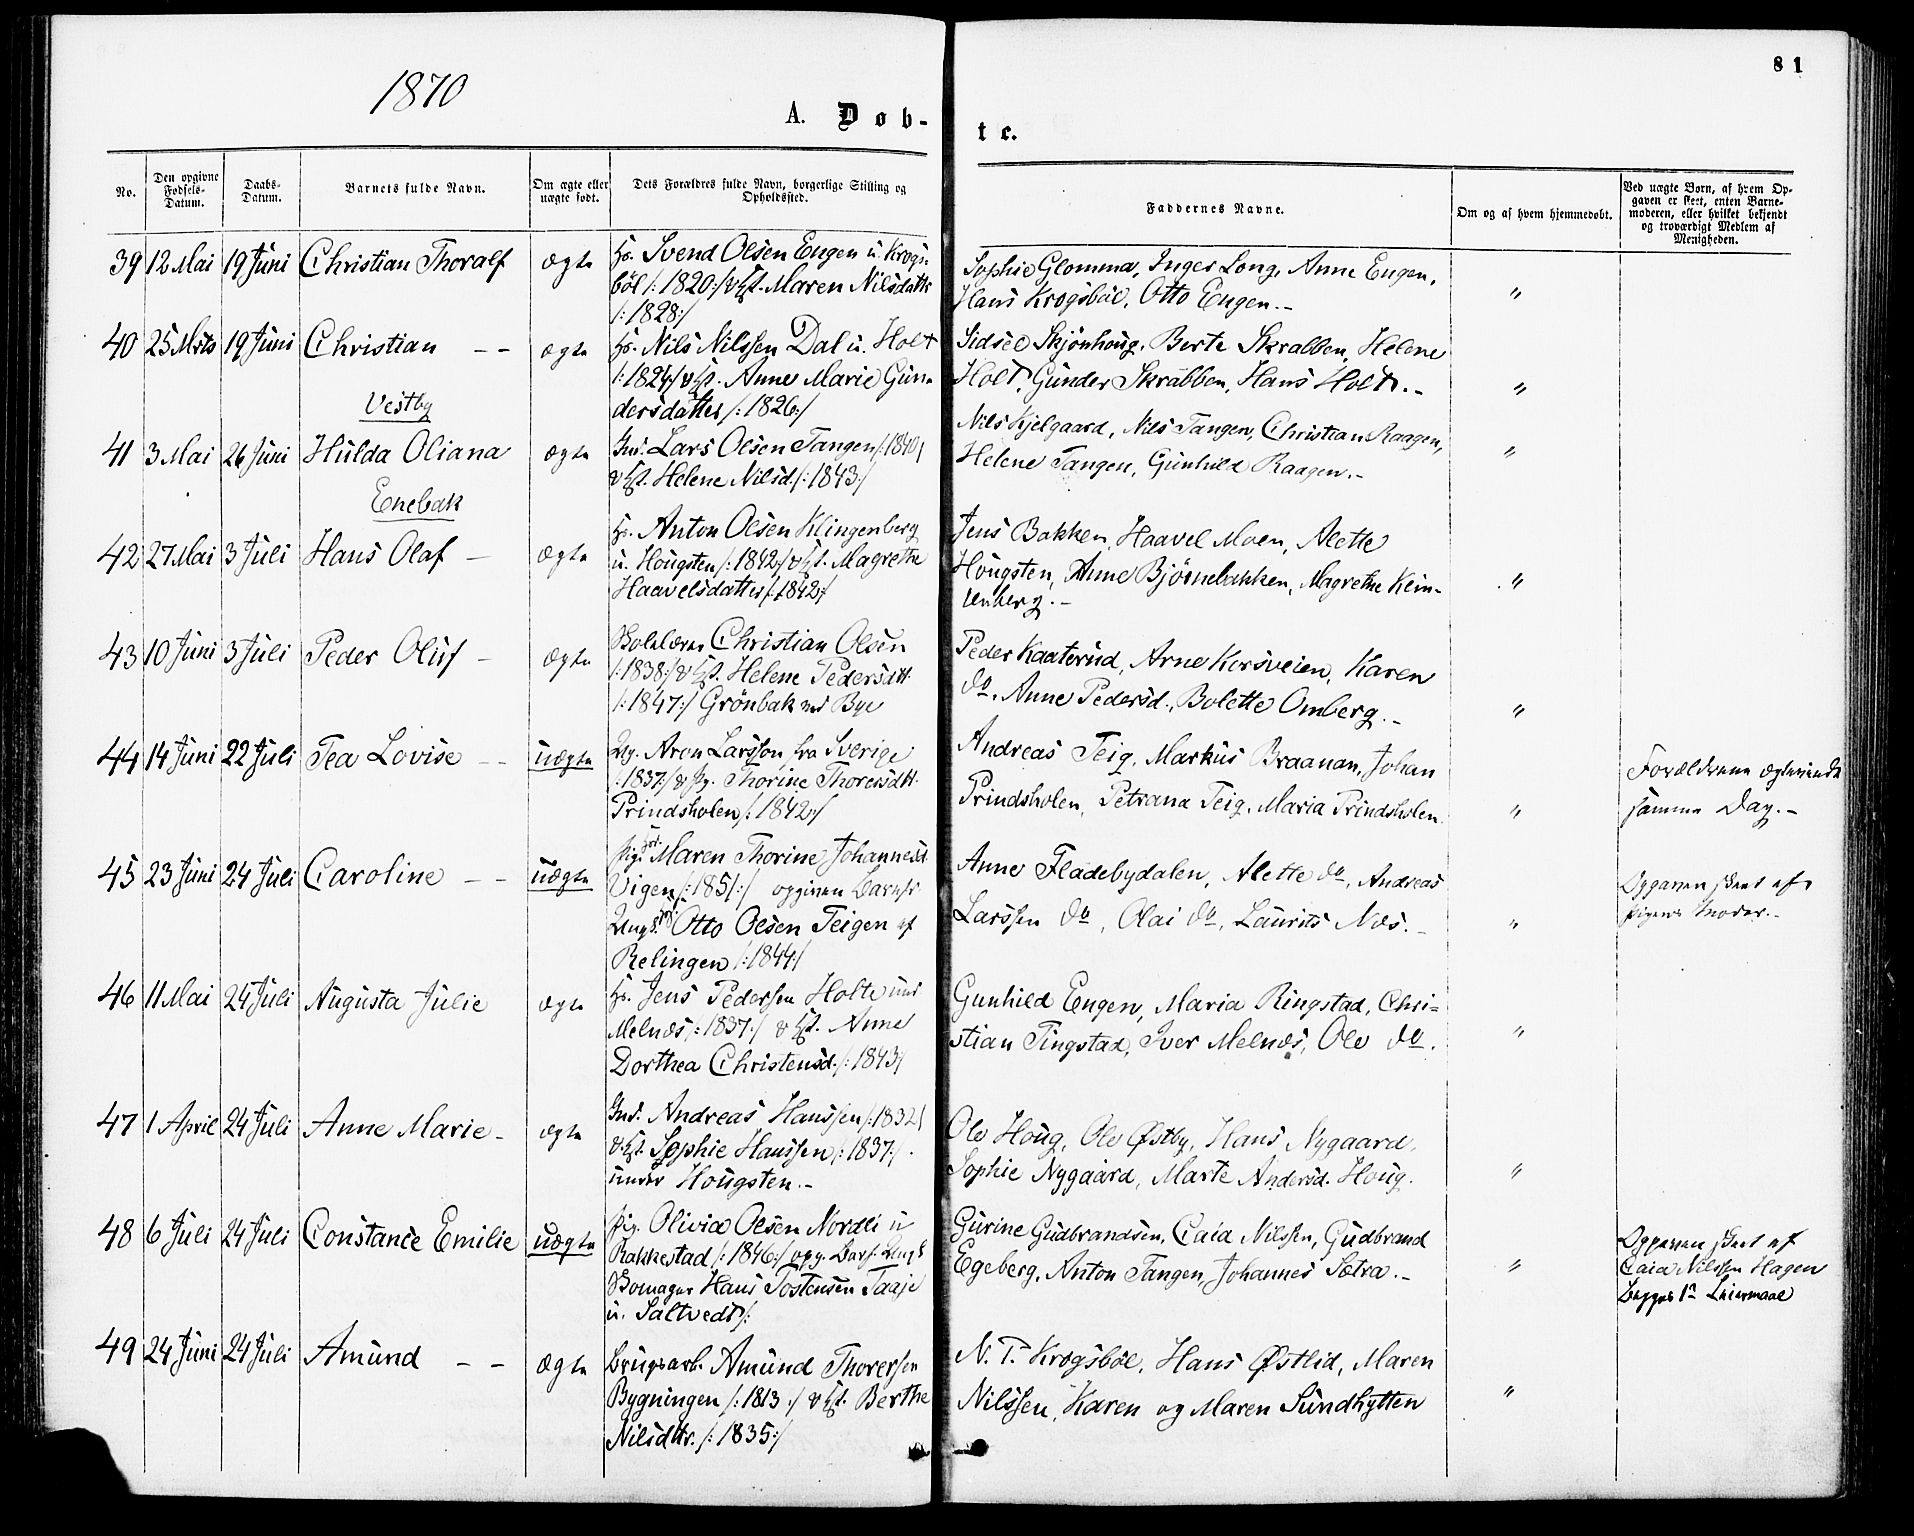 1870
81
A. Døb-
te.
No.
Den opgivne Fødsels-Datum.
Daabs-Datum.
Barnets fulde Navn.
Om ægte eller uægte født.
Dets Forældres fulde Navn, borgerlige Stilling og Opholdssted.
Faddernes Navne.
Om og af hvem hjemmedøbt.
Ved uægte Børn, af hvem Op-
gaven er skeet, enten Barne-
moderen, eller hvilket bekjendt
og troværdigt Medlem af
Menigheden.
39 12 Mai 19 Juni Christian Thoralf ægte
Hs. Svend Olsen Engen u. Krogs-
böl /: 1820:/ & Hst. Maren Nilsdattr
/: 1828:/
Sophie Glomma, Inger Long, Anne Engen,
Hans Krogsböl, Otto Engen.-
"
40 25 Mrts 19 Juni Christian - - ægte
Hs. Nils Nilssen Dal u. Holt
/: 1824:/ & Hst. Anne Marie Gun-
dersdatter /: 1826:/
Sidsel Skjönhoug, Berte Skrabben, Helene
Holt, Gunder Skrabben, Hans Holt.-
"
Vestby
41 3 Mai 26 Juni Hulda Oliana ægte
Ind. Lars Olsen Tangen /: 1840/
& Hst. Helene Nilsd. /: 1843:/
Nils Kjelgaard, Nils Tangen, Christian Raagen,
Helene Tangen, Gunhild Raagen.-
"
Enebak
42 27 Mai 3 Juli Hans Olaf - ægte
Hs. Anton Olsen Klingenberg
u. Hougsten /: 1842:/ & Hst. Magrethe
Haavelsdatter /: 1842:/
Jens Bakken, Haavel Moen, Alette
Hougsten, Anne Bjørnebakken, Magrethe
"
43 10 Juni 3 Juli Peder Oluf - ægte
Skolelærer Christian Olsen
/: 1838:/ & Hst. Helene Pedersdtt.
/: 1847:/ Grönbak und Bye
Peder Kaaterud, Arne Korsveien, Karen
do, Anne Pedersd., Bolette Omberg.-
"
44 14 Juni 22 Juli Tea Lovise - - uægte
Ug. Aron Larsson fra Sverige
/: 1837:/ & Pg. Thorine Thoresdtt.
Prindsholen /: 1842:/
Andreas Teig, Markus Braanan, Johan
Prindsholen, Petrana Teig, Maria Prindsholen
"
Forældrene ægteviede
samme Dag.-
45 23 Juni 24 Juli Caroline - - uægte
Pige Maren Thorine Johannesd.
Vigen /: 1851:/ opgiven Barnfr
Ungk. Otto Olsen Teigen af
Relingen /: 1844:/
Anne Fladebydalen, Alette do, Andreas
Larssen do, Olai do, Laurits Næs.-
"
Opgaven skeet af
Pigens Moder.-
46 11 Mai 24 Juli Augusta Julie ægte
Hs. Jens Pedersen Holte und
Melnæs /: 1837:/ & Hst. Anne
Dorthea Christensd. /: 1843/
Gunhild Engen, Maria Ringstad, Chri-
stian Tingstad, Iver Melnæs, Ole do.
"
47 1 April 24 Juli Anne Marie - ægte
Ind. Andreas Hanssen /: 1832/
& Hst. Sophie Hanssen /: 1837:/.
under Hougsten.-
Ole Houg, Ole Østby, Hans Nygaard,
Sophie Nygaard, Marte Andersd. Houg.
"
48 6 Juli 24 Juli Constance Emilie uægte
Pig. Olivia Olsen Nordli u
Rakkestad /: 1846:/ opg. Barf. Ungk
Skomager Hans Tostensen Taaje
u. Saltvedt /:
Gurine Gudbrandsen, Caia Nilssen, Gudbrand
Egeberg, Anton Tangen, Johannes Sætra.-
"
Opgaven skeet af
Caia Nilssen Hagen
Begges 1ste Leiermaal
49 24 Juni 24 Juli Amund - - ægte
Brugsarb. Amund Thorersen
Bygningen /: 1813:/ & Hst. Berthe
Nilsdtr. /: 1835:/
N. T. Krogsböl, Hans Østlid, Maren
Nilssen, Karen og Maren Sundhytten
"